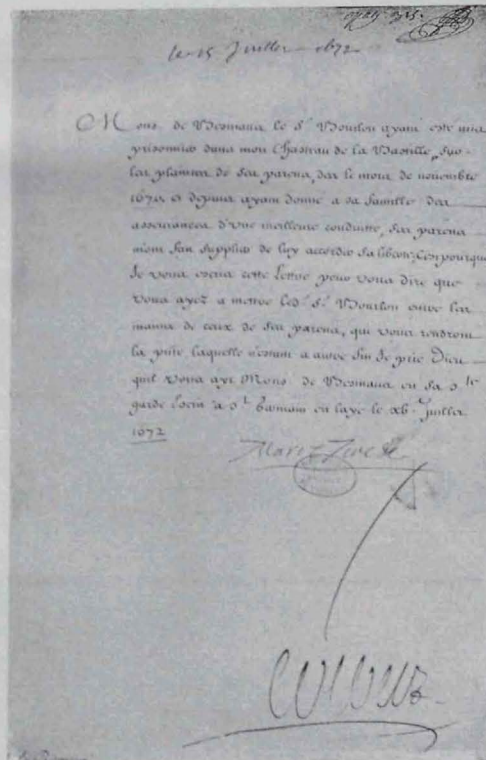 le 15 Juillet 1672
Mons. de Besmaux le Sr. Bourlon ayant esté mis
prisonnier dans mon Chasteau de la Bastille, sur
les plaintes de ses parens, dez le mois de novembre
1670 et depuis ayant donné a sa famille des
asseurances d'une meilleure conduitte, ses parens
m'ont fait supplier de luy accorder sa liberté; C'est pourquoy
Je vous escris cette Lettre pour vous dire que
vous ayez a mettre led. Sr. Bourlon entre les
mains de ceux de ses parens, qui vous rendront
la pnte laquelle n'estant a autre fin Je prie Dieu
qu'il vous ayt Mons. de Besmaux en sa Ste
garde Escrit a St. Germain en laye le xv Juillet
1672
Marie Terese
Colbert